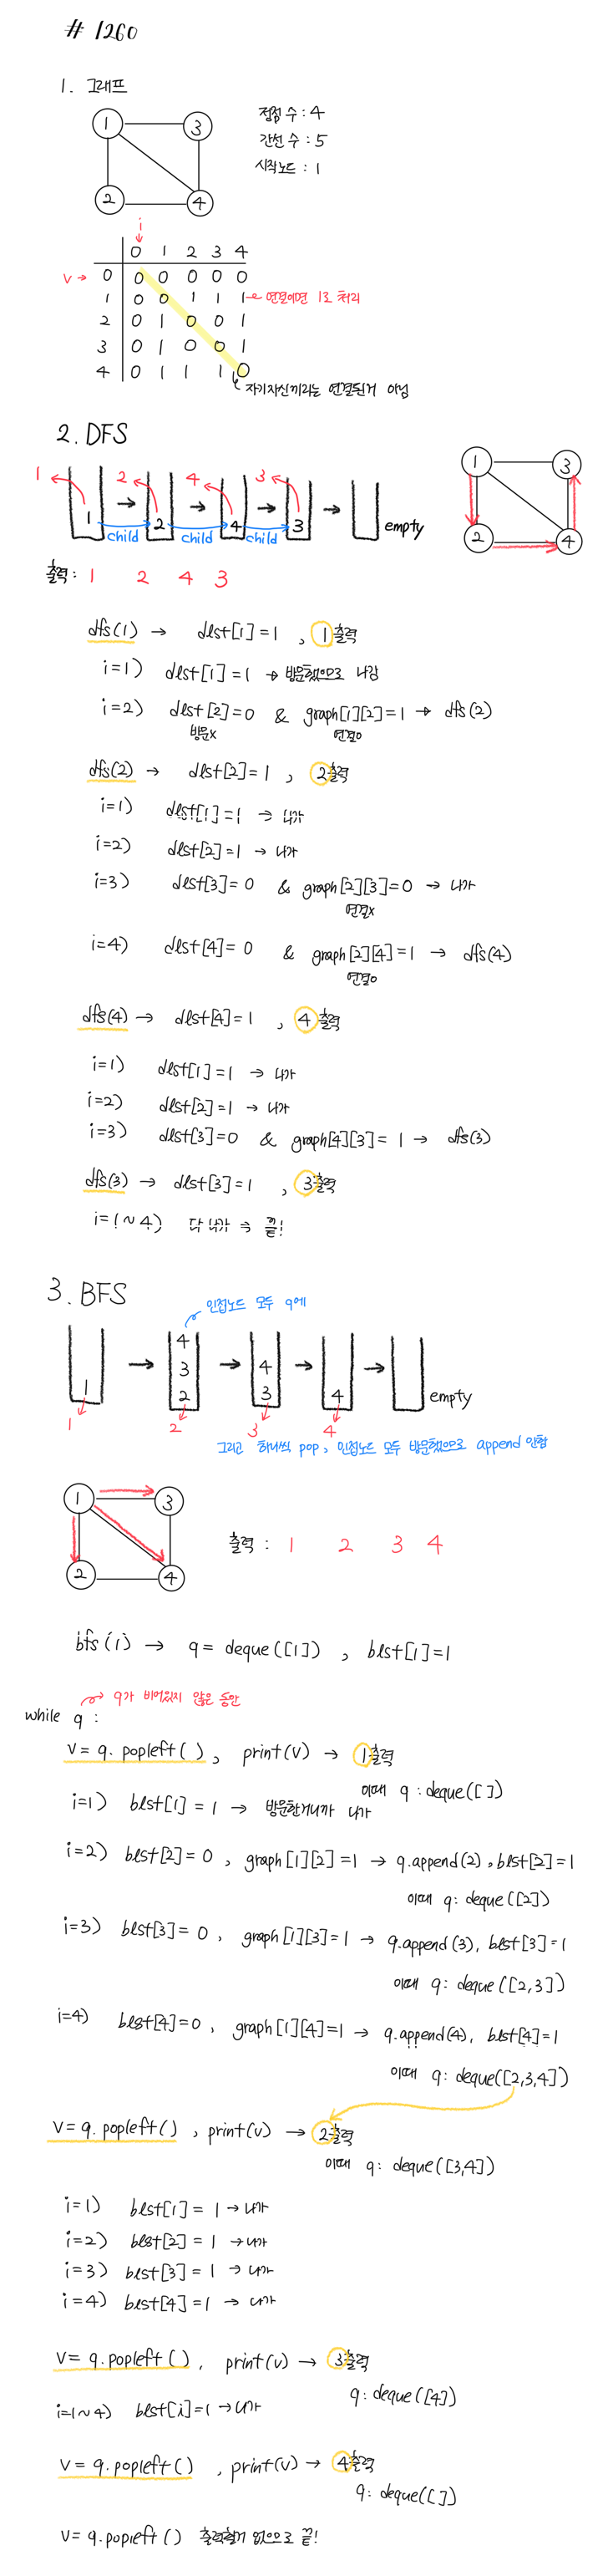 # 1260
1. 그래프
1 3
2 4
정점 수 : 4
간선 수 : 5
시작노드 : 1
i
0 1 2 3 4
v → 0 0 0 0 0 0
1 0 0 1 1 1 연결이면 1로 처리
2 0 1 0 0 1
3 0 1 0 0 1
4 0 1 1 1 0
자기자신끼리는 연결된거 아님
2. DFS
1 2 4 3
1 → 2 → 4 → 3 → empty
child child child
1 3
2 4
출력 : 1 2 4 3
dfs(1) → dlst[1] = 1 , 1출력
i=1) dlst[1] = 1 → 방문했으므로 나감
i=2) dlst[2] = 0 & graph[1][2] = 1 → dfs(2)
방문x 연결o
dfs(2) → dlst[2] = 1 , 2출력
i=1) dlst[1] = 1 → 나가
i=2) dlst[2] = 1 → 나가
i=3) dlst[3] = 0 & graph[2][3] = 0 → 나가
연결x
i=4) dlst[4] = 0 & graph[2][4] = 1 → dfs(4)
연결o
dfs(4) → dlst[4] = 1 , 4출력
i=1) dlst[1] = 1 → 나가
i=2) dlst[2] = 1 → 나가
i=3) dlst[3] = 0 & graph[4][3] = 1 → dfs(3)
dfs(3) → dlst[3] = 1 , 3출력
i=1~4) 다 나가 ⇒ 끝!
3. BFS
인접노드 모두 q에
1 → 4 3 2 → 4 3 → 4 → empty
1 2 3 4
그리고 하나씩 pop, 인접노드 모두 방문했으므로 append 안함
1 3
2 4
출력 : 1 2 3 4
bfs(1) → q = deque([1]) , blst[1]=1
→ q가 비어있지 않은 동안
while q :
v = q. popleft( ) , print(v) → 1출력
이때 q : deque([ ])
i=1) blst[1] = 1 → 방문한거니까 나가
i=2) blst[2] = 0 , graph[1][2] = 1 → q.append(2) , blst[2] = 1
이때 q: deque([2])
i=3) blst[3] = 0 , graph[1][3] = 1 → q.append(3), blst[3] = 1
이때 q: deque([2,3])
i=4) blst[4] = 0 , graph[1][4] = 1 → q.append(4), blst[4] = 1
이때 q: deque([2,3,4])
v = q. popleft( ) , print(v) → 2출력
이때 q: deque([3,4])
i=1) blst[1] = 1 → 나가
i=2) blst[2] = 1 → 나가
i=3) blst[3] = 1 → 나가
i=4) blst[4] = 1 → 나가
v = q. popleft( ) , print(v) → 3출력
q: deque([4])
i=1~4) blst[i] = 1 → 나가
v = q. popleft( ) , print(v) → 4출력
q: deque([ ])
v = q. popleft( ) 출력할게 없으므로 끝!